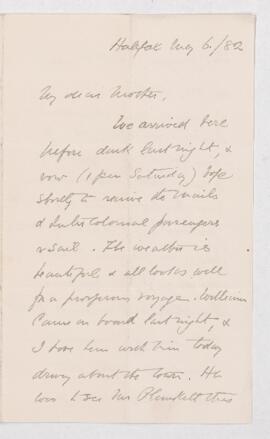 Halifax May 6./82
My dear Mother,
We arrived here
before dark last night, &
now (1 pm Saturday) hope
shortly to receive the mails
& Intercolonial passengers
& sail. The weather is
beautiful & all looks well
for a prosperous voyage. William
came on board last night, &
I have been with him today
driving about the town. He
has to see Mr Plunkett this